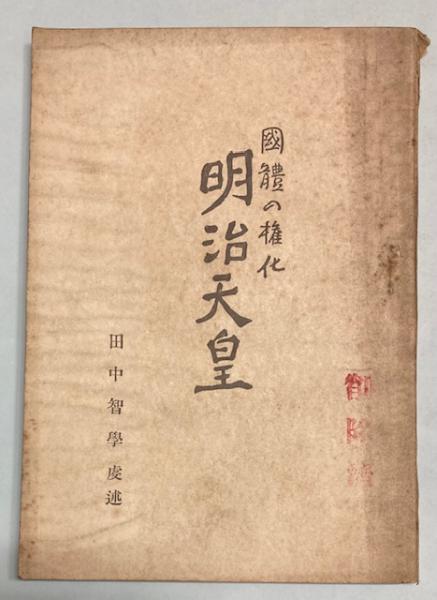 國體の権化
明治天皇
田中智學虔述